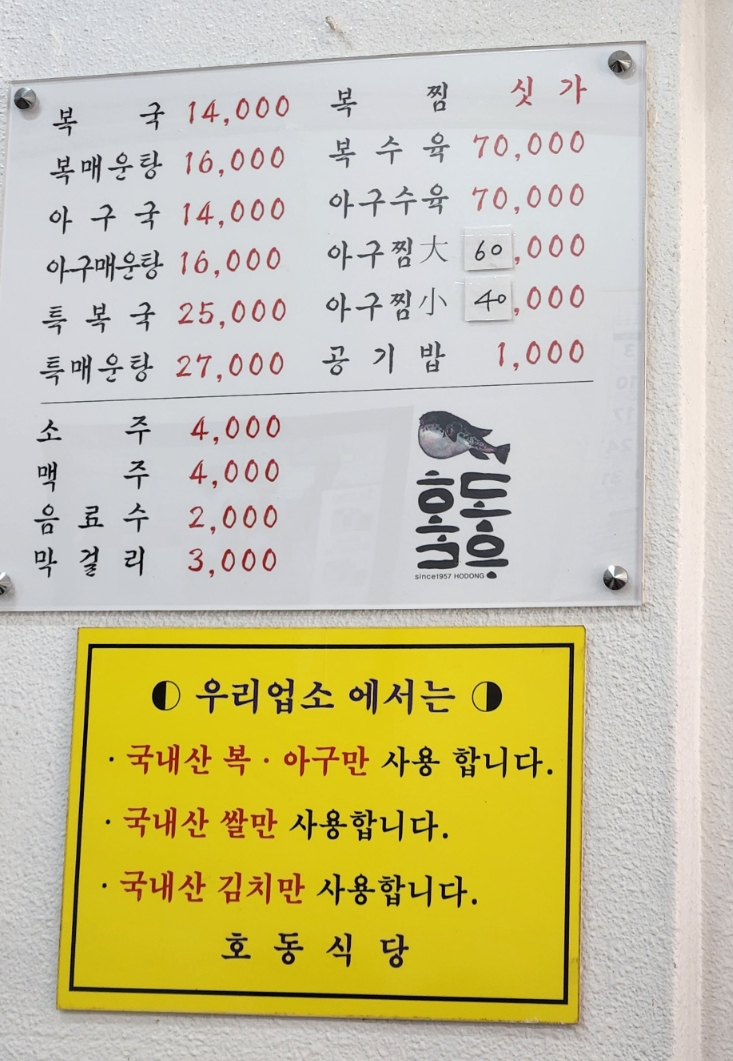 복 국 14,000
복매운탕 16,000
아 구 국 14,000
아구매운탕 16,000
특 복 국 25,000
특매운탕 27,000
복 찜 싯 가
복 수 육 70,000
아구수육 70,000
아구찜大 60,000
아구찜小 40,000
공 기 밥 1,000
소 주 4,000
맥 주 4,000
음 료 수 2,000
막 걸 리 3,000
호동
복국
since1957 HODONG
우리업소 에서는
· 국내산 복 · 아구만 사용 합니다.
· 국내산 쌀만 사용합니다.
· 국내산 김치만 사용합니다.
호 동 식 당